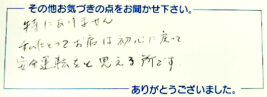 その他お気づきの点をお聞かせ下さい。
特にありません
私にとってお店は初心に戻って
安全運転をと思える所です
ありがとうございました。